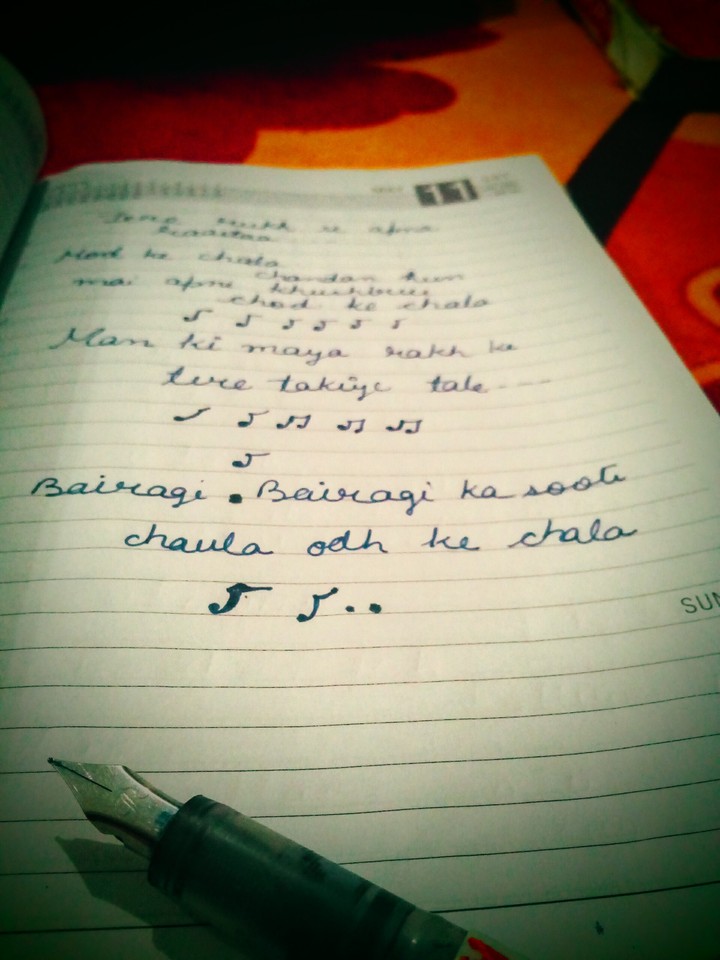 11
Tere rukh se apna
raastaa
Mod ke chala
chandan hun
mai apni khushbuu
chod ke chala
Man ki maya rakh ke
tere takiye tale ----
Bairagi . Bairagi ka sooti
chaula odh ke chala
SUN